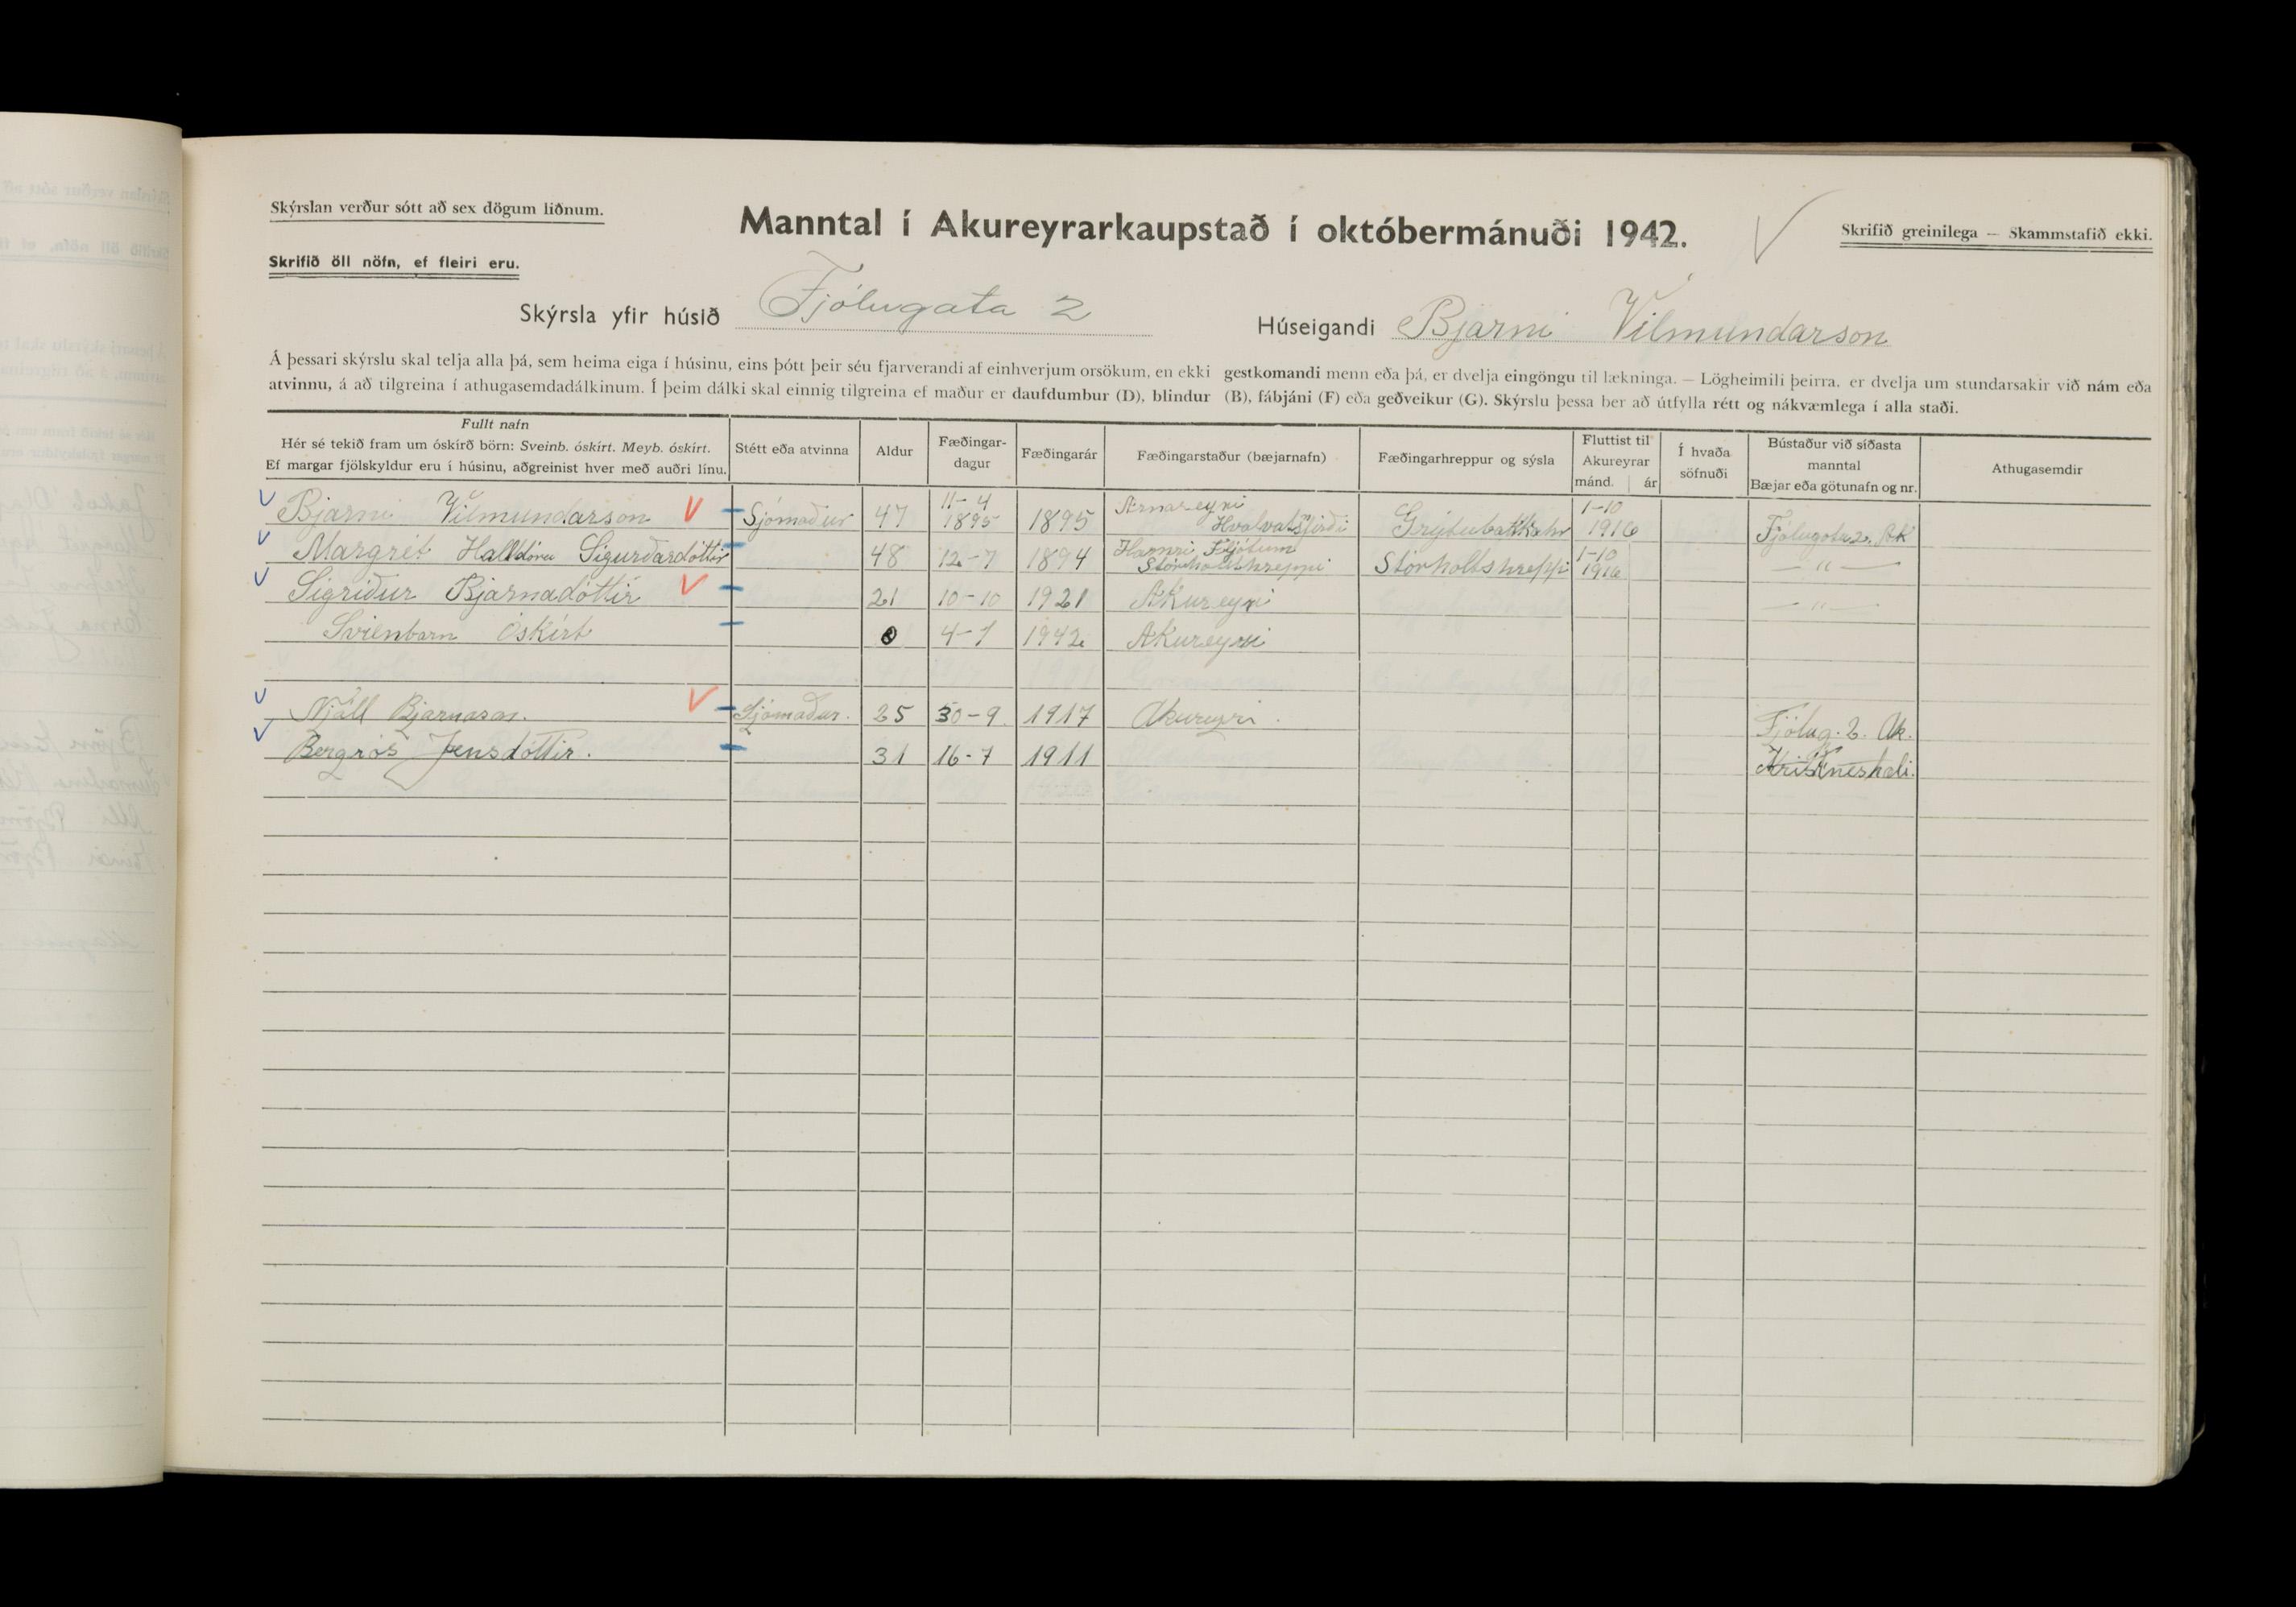 Skýrslan verður sótt að sex dögum liðnum.
Skrifið öll nöfn, ef fleiri eru.
Manntal í Akureyrarkaupstað í októbermánuði 1942.
Skrifið greinilega — Skammstafið ekki.
Skýrsla yfir húsið Fjólugata 2
Húseigandi Bjarni Vilmundarson
Á þessari skýrslu skal telja alla þá, sem heima eiga í húsinu, eins þótt þeir séu fjarverandi af einhverjum orsökum, en ekki gestkomandi menn eða þá, er dvelja eingöngu til lækninga. — Lögheimili þeirra, er dvelja um stundarsakir við nám eða
atvinnu, á að tilgreina í athugasemdadálkinum. Í þeim dálki skal einnig tilgreina ef maður er daufdumbur (D), blindur (B), fábjáni (F) eða geðveikur (G). Skýrslu þessa ber að útfylla rétt og nákvæmlega í alla staði.
Fullt nafn
Hér sé tekið fram um óskírð börn: Sveinb. óskírt. Meyb. óskírt.
Ef margar fjölskyldur eru í húsinu, aðgreinist hver með auðri línu.
Stétt eða atvinna
Aldur
Fæðingar-
dagur
Fæðingarár
Fæðingarstaður (bæjarnafn)
Fæðingarhreppur og sýsla
Fluttist til
Akureyrar
mánd. ár
Í hvaða
söfnuði
Bústaður við síðasta
manntal
Bæjar eða götunafn og nr.
Athugasemdir
Bjarni Vilmundarson Sjómaður 47 11-4 1895 1895 Hvalvatsfirði 1-10 1916 Fjólugotu 2. AK
Margrét Halldóra Sigurðardóttir 48 12-7 1894 Fljótum Storholtshreppi Storholtshreppi 1-10 1916 — " —
Sigriður Bjarnadóttir 21 10-10 1921 Akureyri — " —
Svienbarn óskírt 0 4-7 1942 Akureyri
Njáll Bjarnason. Sjómaður. 25 30-9. 1917 Akureyri.
Fjólug. 2. Ak.
Bergrós Jensdóttir. 31 16-7 1911 Kristneshæli.